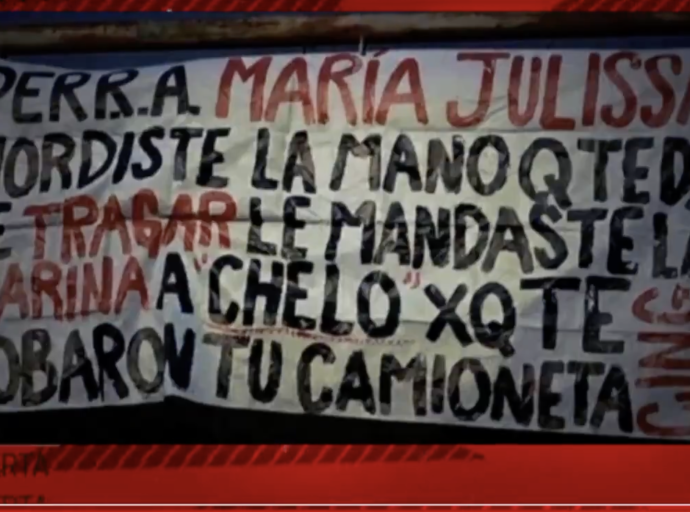 PERR.A. MARÍA JULISSA
MORDISTE LA MANO Q TE D
E TRAGAR LE MANDASTE LA
ARINA A "CHELO" XQ TE
OBARON TU CAMIONETA
CING
RTA